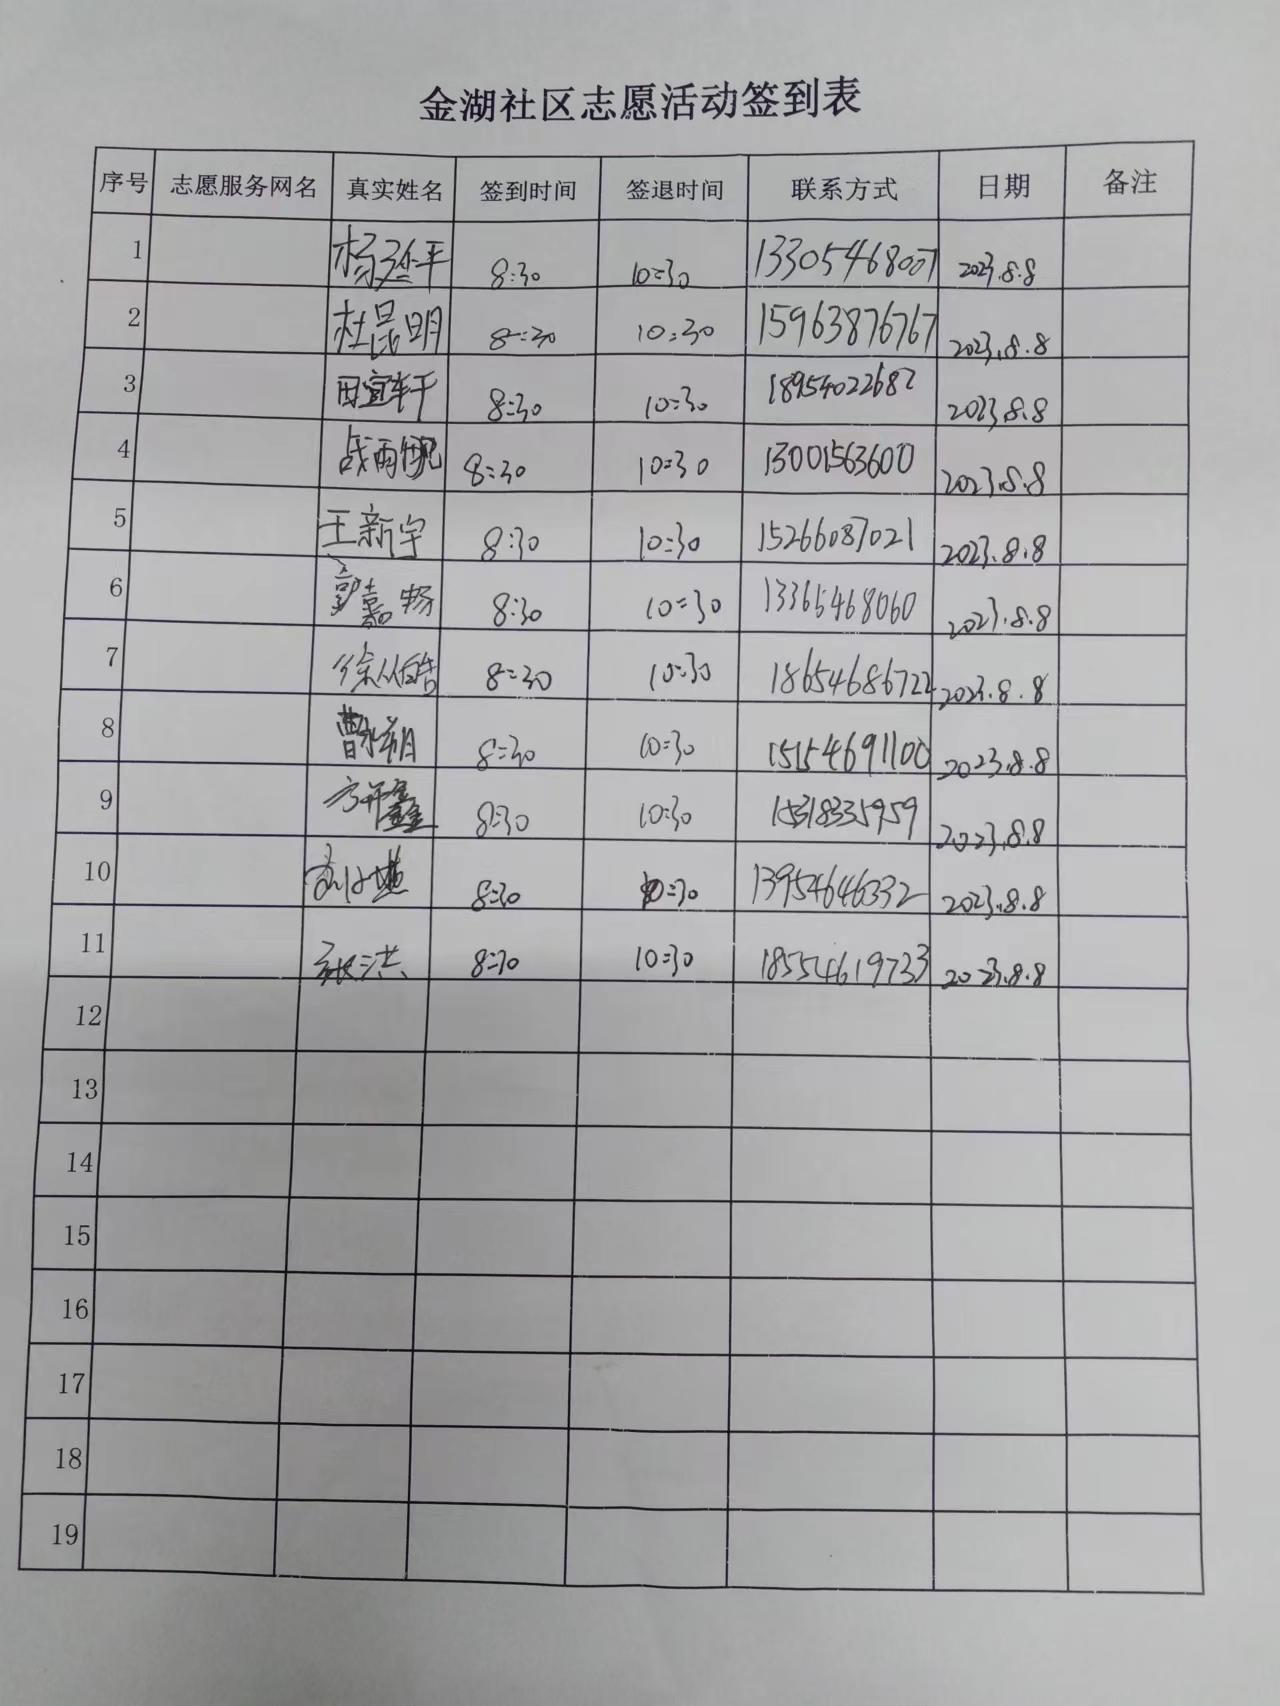 金湖社区志愿活动签到表
序号 志愿服务网名 真实姓名 签到时间 签退时间 联系方式 日期 备注
1 8:30 10:30 13305468007 2023.8.8
2 杜昆明 8:30 10:30 15963876767 2023.8.8
3 田宜轩 8:30 10:30 18954022682 2023.8.8
4 战雨 8:30 10:30 13001563600 2023.8.8
5 王新宇 8:30 10:30 15266087021 2023.8.8
6 郭嘉畅 8:30 10:30 13365468060 2023.8.8
7 徐从皓 8:30 10:30 18654686722 2023.8.8
8 曹永朔 8:30 10:30 15154691100 2023.8.8
9 方开鑫 8:30 10:30 15318335959 2023.8.8
10 8:30 10:30 13954646332 2023.8.8
11 张洪 8:30 10:30 18554619733 2023.8.8
12
13
14
15
16
17
18
19